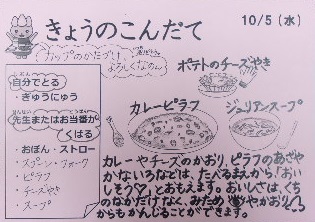 きょうのこんだて
10/5(水)
カップのかたづけ
よろしくなのー
自分でとる
・ぎゅうにゅう
先生またはお当番が
くばる
・おぼん・ストロー
・スプーン・フォーク
・ピラフ
・チーズやき
・スープ
ポテトのチーズやき
カレーピラフ
ジュリアンスープ
カレーやチーズのかおり、ピラフのあざや
かないろなどは、たべるまえから「おい
しそう♡」とおもえます。おいしさは、くち
のなかだけでなく、みため👁やかおり
からもかんじることができます。